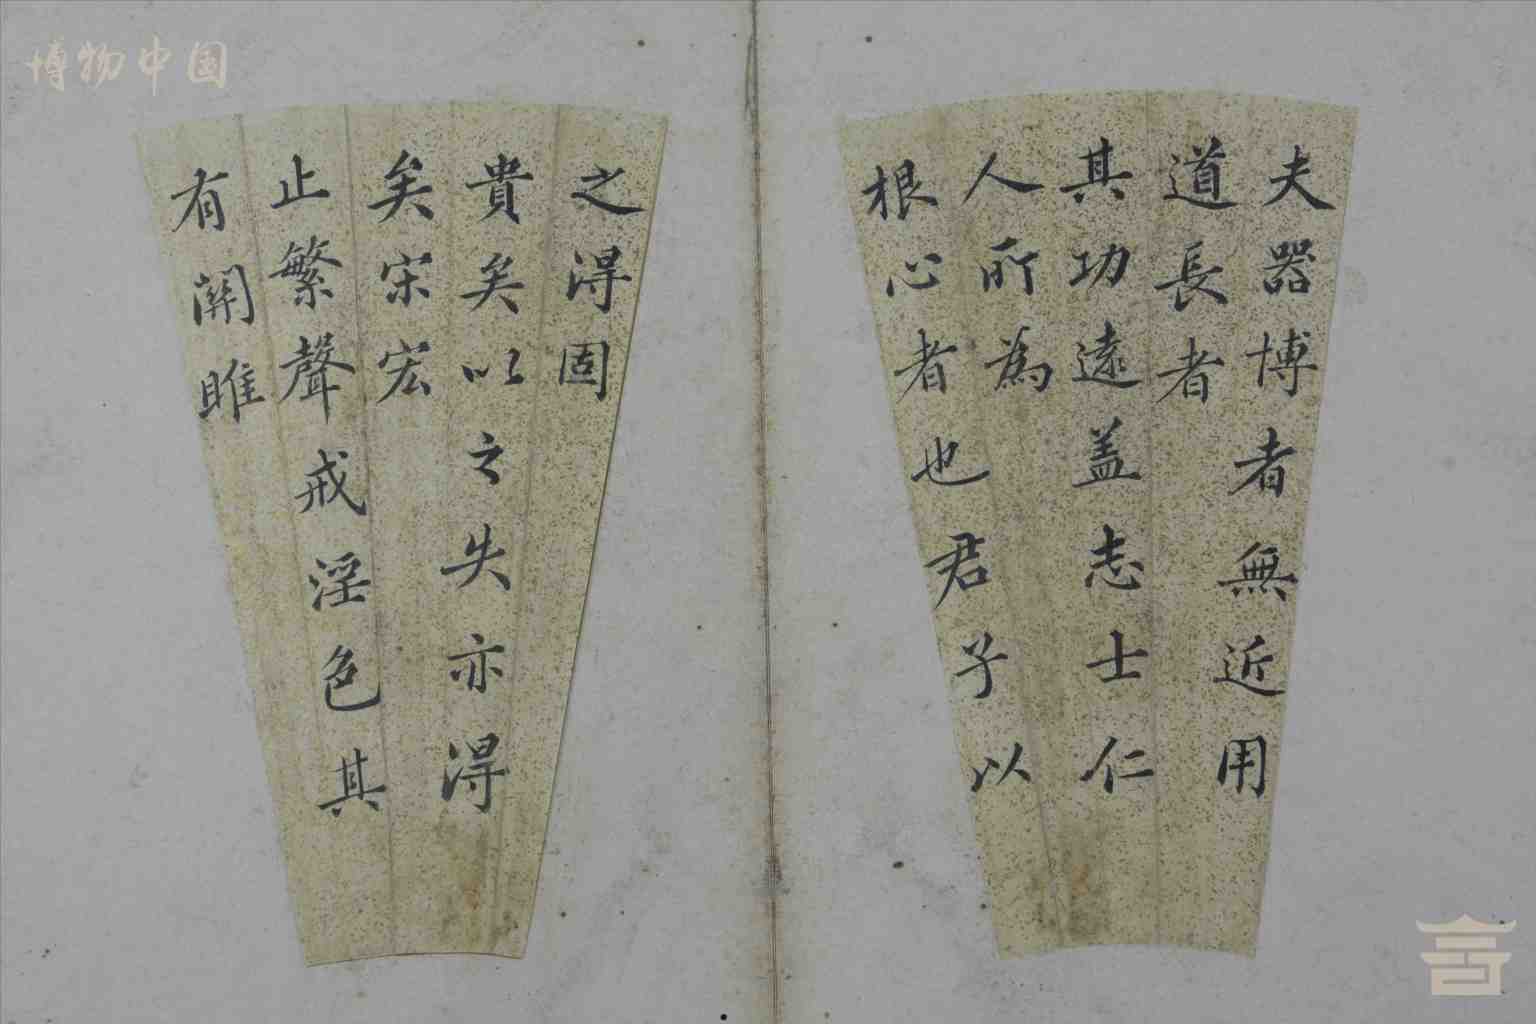 博物中国
夫器博者無近用
道長者
其功遠盖志士仁
人所為
根心者也君子以
之得固
貴矣以之失亦得
矣宋宏
止繁聲戒淫色其
有關雎